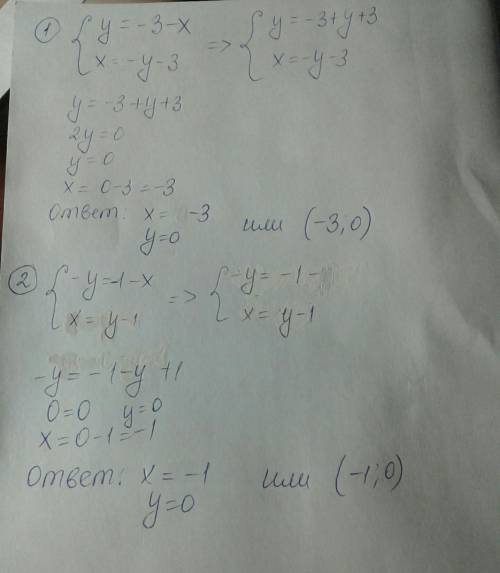 ① { y = -3 - x => { y = -3 + y + 3
x = -y - 3 x = -y - 3
y = -3 + y + 3
2y = 0
y = 0
x = 0 - 3 = -3
Ответ: x = -3 или (-3; 0)
y = 0
② { -y = -1 - x => { -y = -1 -
x = y - 1 x = y - 1
-y = -1 - y + 1
0 = 0 y = 0
x = 0 - 1 = -1
Ответ: x = -1 или (-1; 0)
y = 0